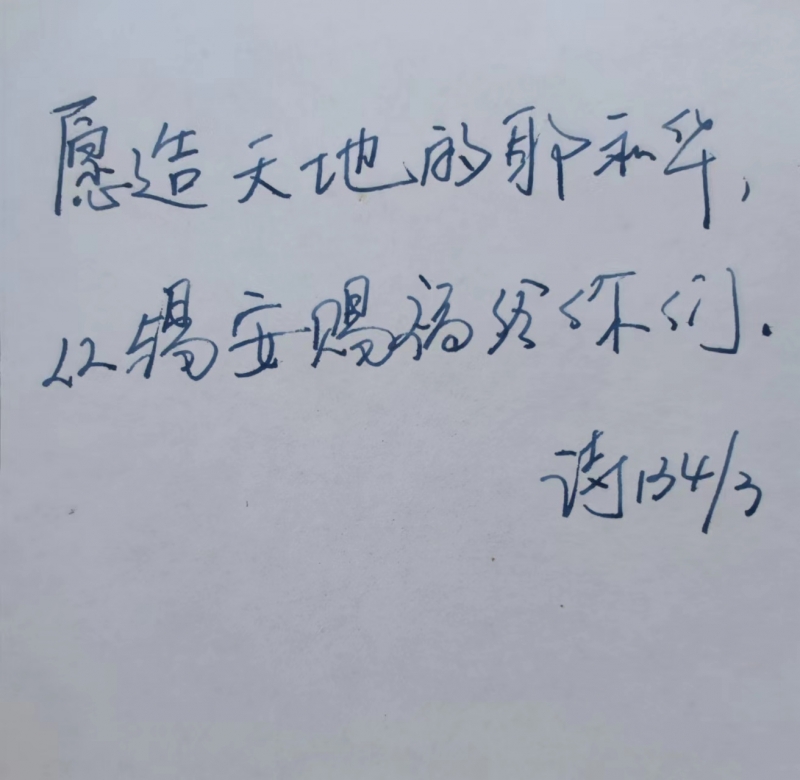 愿造天地的耶和华,
从锡安赐福给你们.
诗134/3